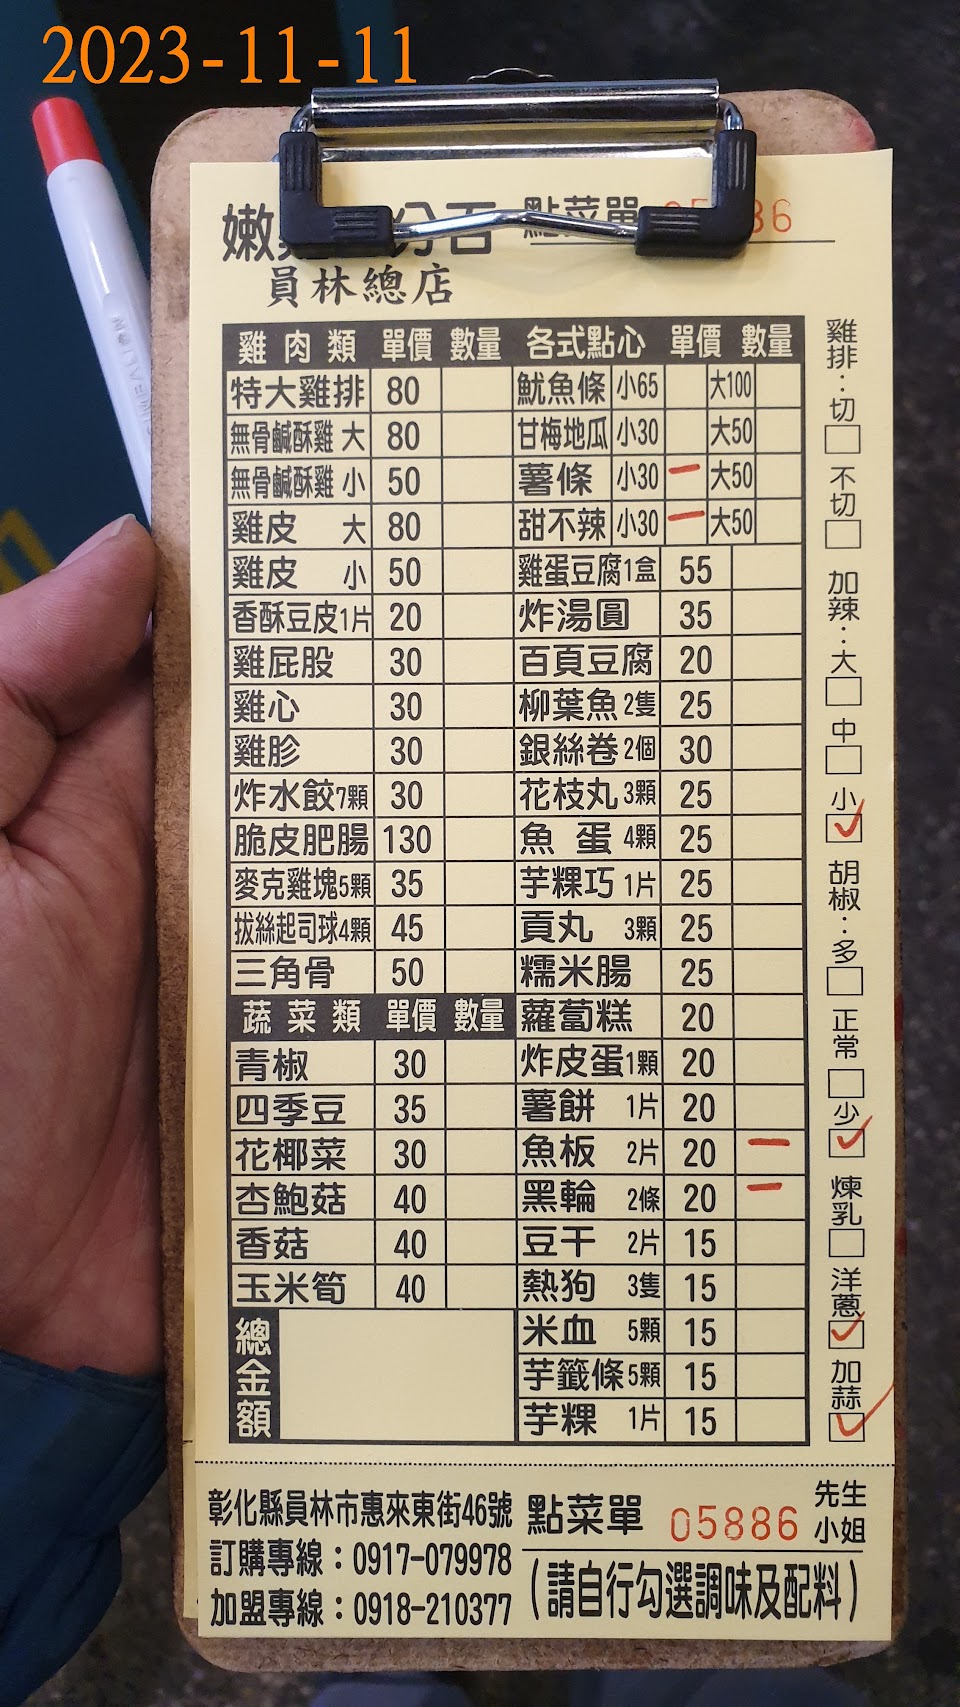 2023-11-11
點菜單
員林總店
雞肉類 單價 數量 各式點心 單價 數量
特大雞排 80 魷魚條 小65 大100
無骨鹹酥雞 大 80 甘梅地瓜 小30 大50
無骨鹹酥雞 小 50 薯條 小30 一 大50
雞皮 大 80 甜不辣 小30 一 大50
雞皮 小 50 雞蛋豆腐1盒 55
香酥豆皮1片 20 炸湯圓 35
雞屁股 30 百頁豆腐 20
雞心 30 柳葉魚2隻 25
雞胗 30 銀絲卷2個 30
炸水餃7顆 30 花枝丸3顆 25
脆皮肥腸 130 魚蛋 4顆 25
麥克雞塊5顆 35 芋粿巧 1片 25
拔絲起司球4顆 45 貢丸 3顆 25
三角骨 50 糯米腸 25
蔬菜類 單價 數量 蘿蔔糕 20
青椒 30 炸皮蛋1顆 20
四季豆 35 薯餅 1片 20
花椰菜 30 魚板 2片 20 一
杏鮑菇 40 黑輪 2條 20 一
香菇 40 豆干 2片 15
玉米筍 40 熱狗 3隻 15
總金額 米血 5顆 15
芋籤條5顆 15
芋粿 1片 15
雞排：切☐ 不切☐
加辣：大☐ 中☐ 小☑
胡椒：多☐ 正常☐ 少☑
煉乳☐ 洋蔥☑ 加蒜☑
彰化縣員林市惠來東街46號
訂購專線：0917-079978
加盟專線：0918-210377
點菜單 05886 先生
小姐
(請自行勾選調味及配料)